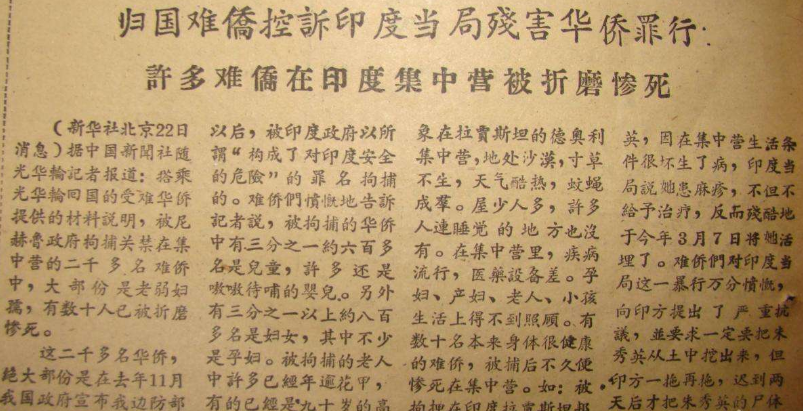 归国难僑控訴印度当局殘害华侨罪行：
許多难僑在印度集中营被折磨惨死
（新华社北京22日
消息）据中国新聞社随
光华輪記者报道：搭乘
光华輪回国的受难华侨
提供的材料説明，被尼
赫鲁政府拘捕关禁在集
中营的二千多名难侨
中，大部份是老弱妇
孺，有数十人已被折磨
惨死。
这二千多名华侨，
絕大部份是在去年11月
我国政府宣布我边防部
以后，被印度政府以所
謂“构成了对印度安全
的危險”的罪名拘捕
的。难侨們憤慨地告訴
記者說，被拘捕的华侨
中有三分之一約六百多
名是兒童，許多还是
嗷嗷待哺的嬰兒。另外
有三分之一以上約八百
多名是妇女，其中不少
是孕妇。被拘捕的老人
中許多已經年逾花甲，
有的已經是九十岁的高
桑在拉賈斯坦的德奧利
集中营，地处沙漠，寸草
不生，天气酷热，蚊蝇
成羣。屋少人多，許多
人連睡觉的地方也沒
有。在集中营里，疾病
流行，医藥設备差。孕
妇、产妇、老人、小孩
生活上得不到照顾。有
数十名本来身体很健康
的难侨，被捕后不久便
惨死在集中营。如：被
拘押在印度拉賈斯坦邦
英，因在集中营生活条
件很坏生了病，印度当
局說她患麻疹，不但不
給予治疗，反而残酷地
于今年3月7日将她活
埋了。难侨們对印度当
局这一暴行万分憤慨，
向印方提出了严重抗
議，並要求一定要把朱
秀英从土中挖出来，但
印方一拖再拖，迟到两
天后才把朱秀英的尸体